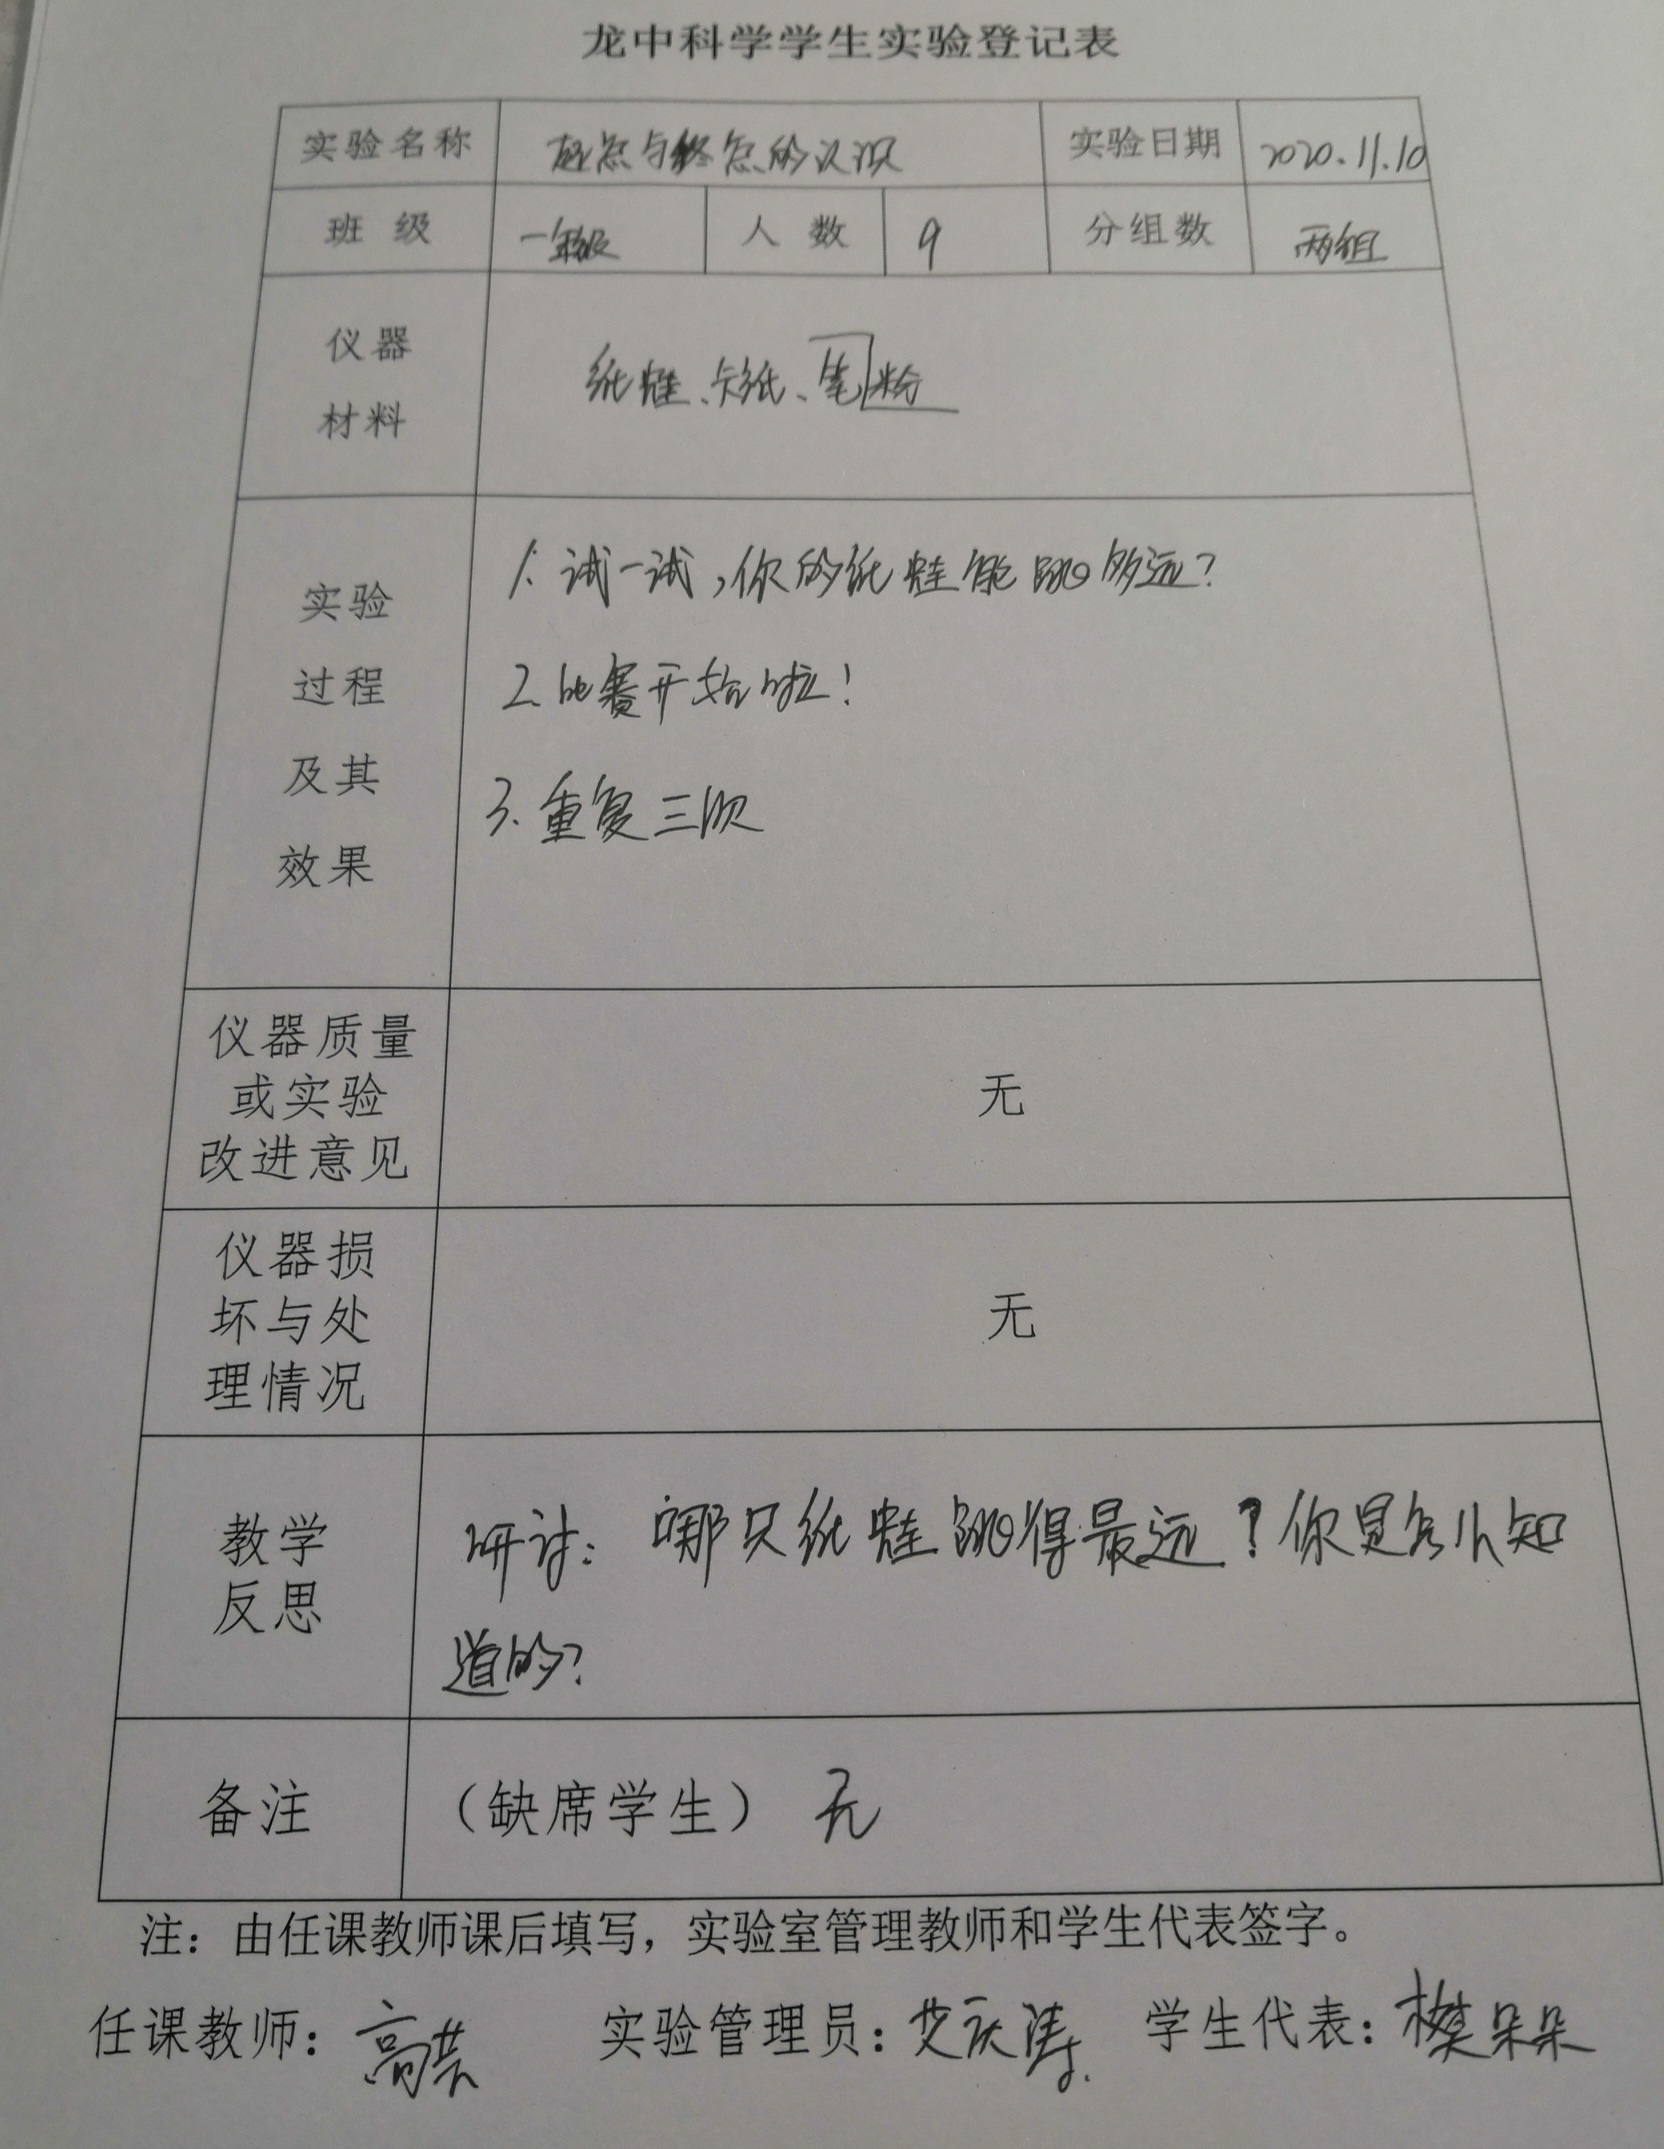 龙中科学学生实验登记表
实验名称 起点与终点的认识 实验日期 2020.11.10
班 级 一年级 人 数 9 分组数 两组
仪器
材料
纸蛙、卡纸、笔粉
实验
过程
及其
效果
1. 试一试，你的纸蛙能跳多远？
2. 比赛开始啦！
3. 重复三次
仪器质量
或实验
改进意见
无
仪器损
坏与处
理情况
无
教学
反思
研讨：哪只纸蛙跳得最远？你是怎么知
道的？
备注 （缺席学生） 无
注：由任课教师课后填写，实验室管理教师和学生代表签字。
任课教师：高芸 实验管理员：艾庆涛 学生代表：樊朵朵